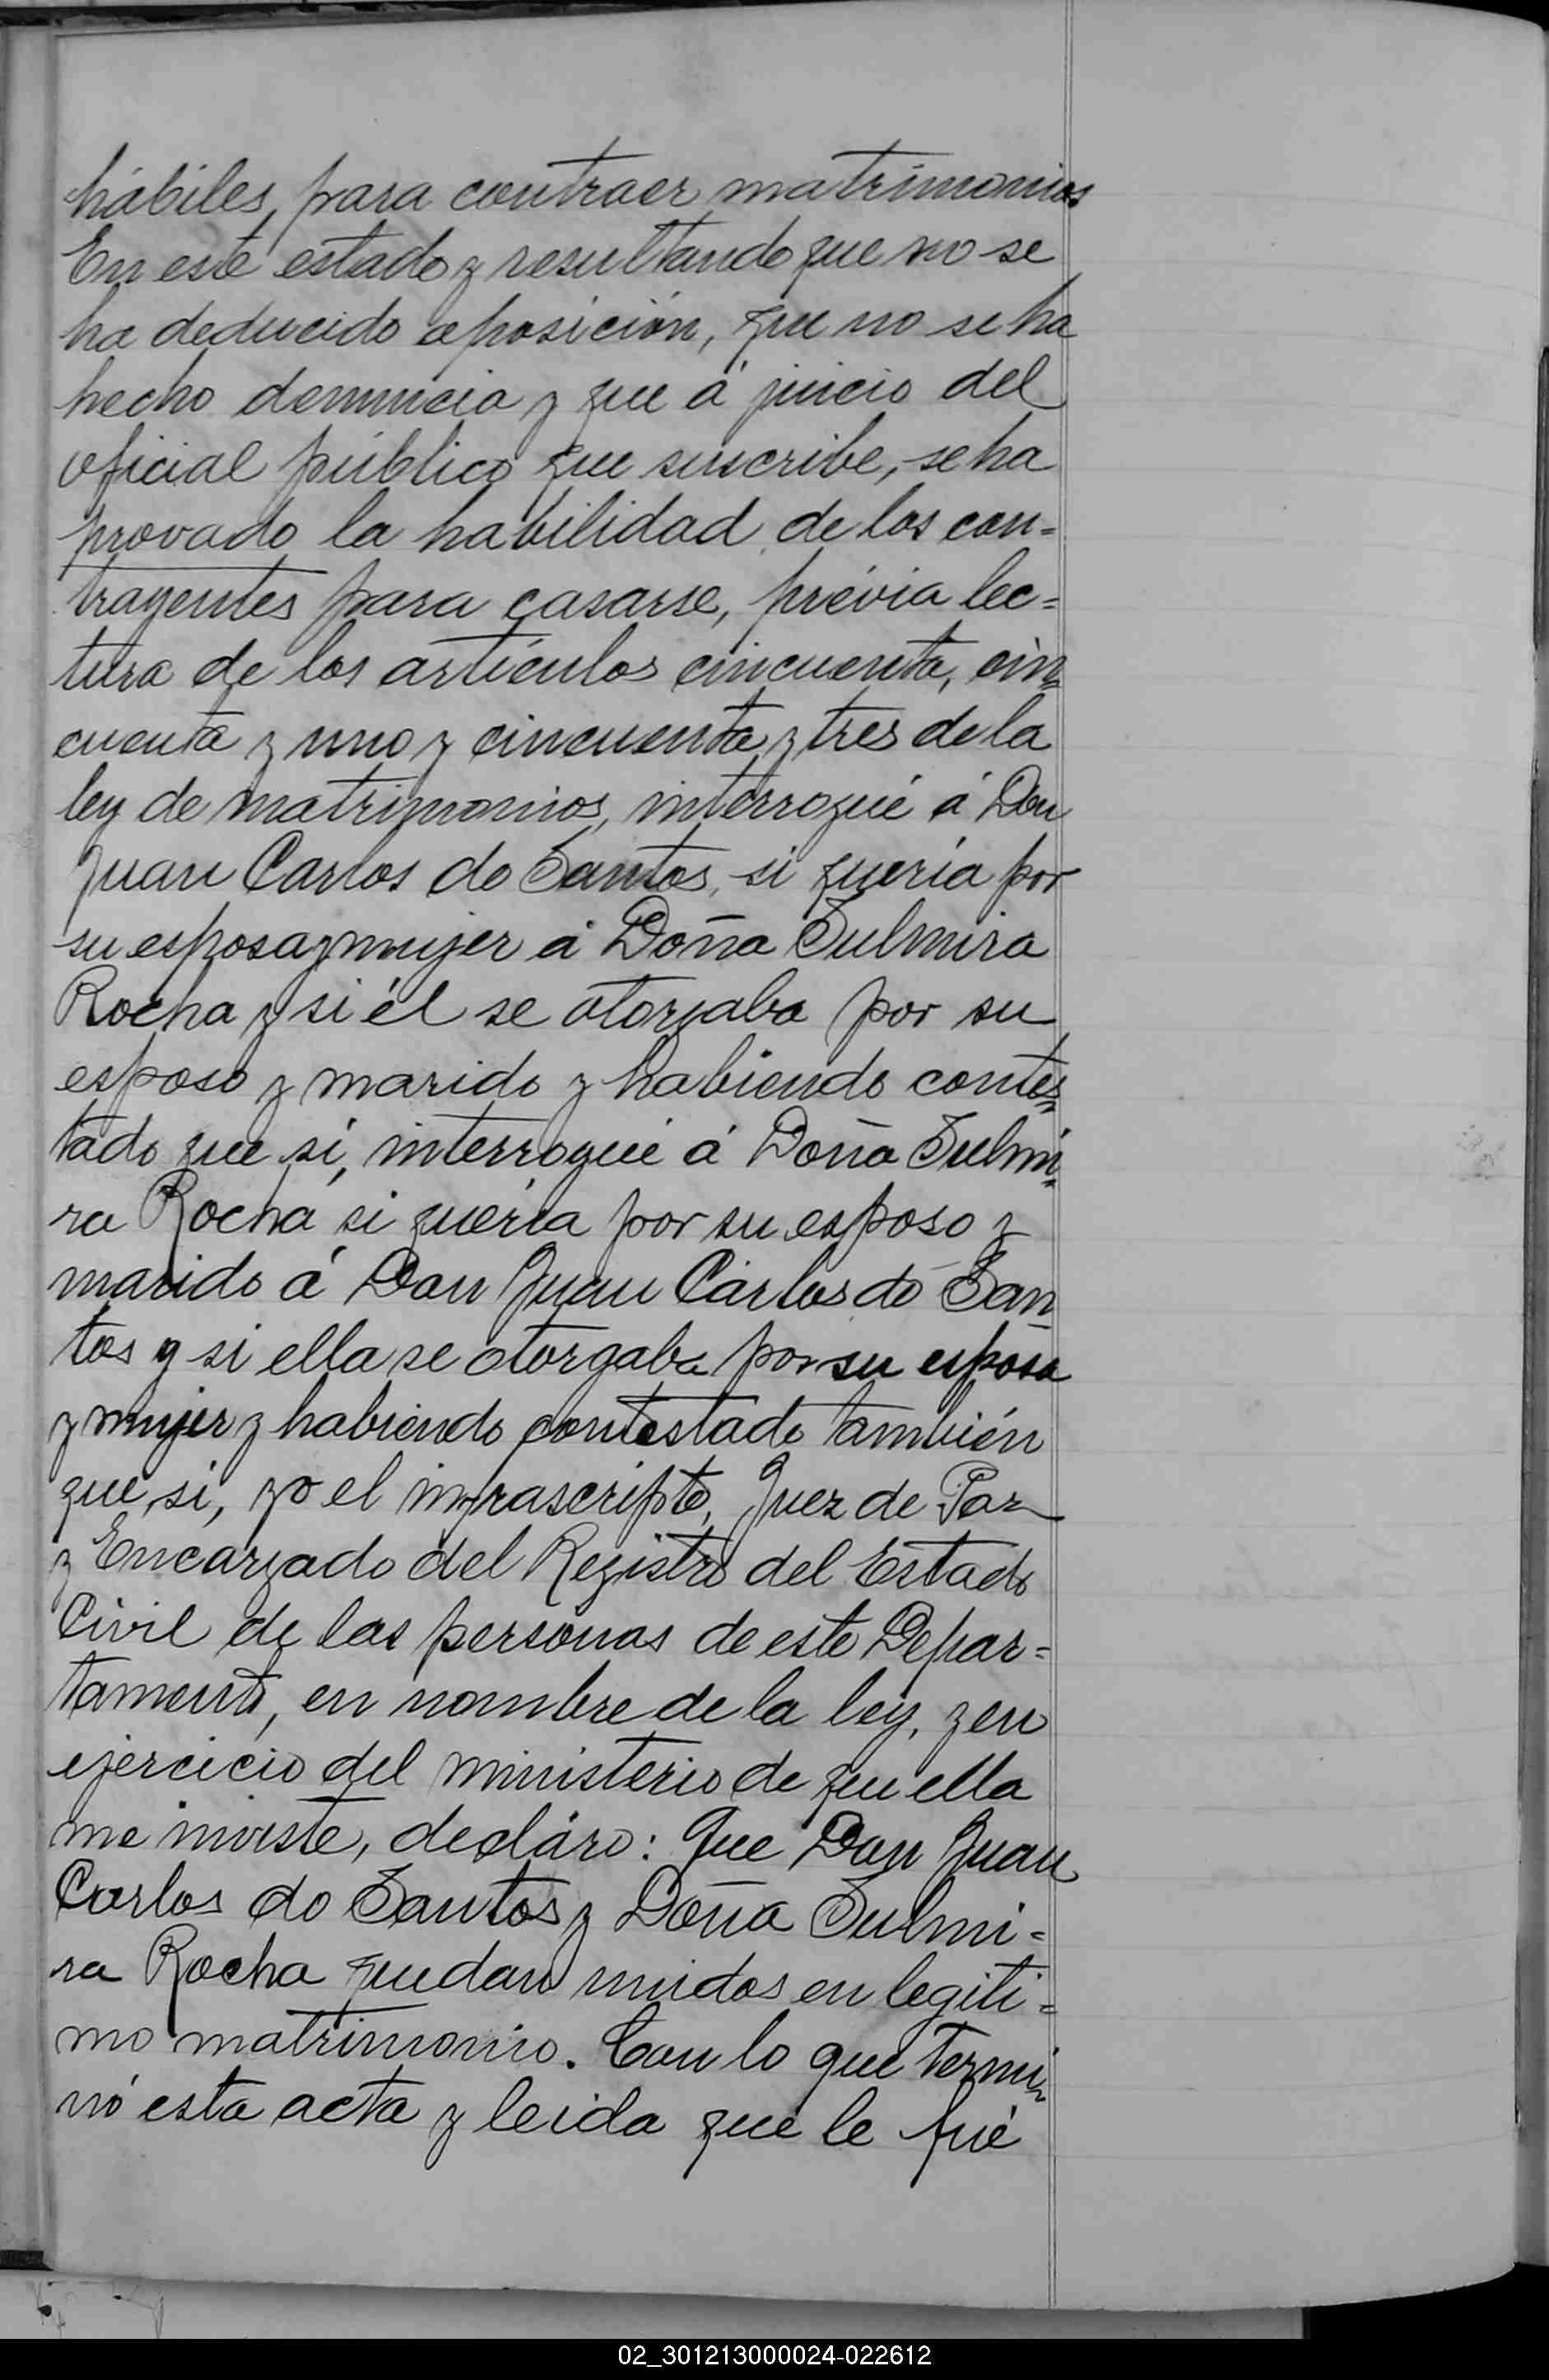 hábiles, para contraer matrimonios
En este estado y resultando que no se
ha deducido oposición, que no se ha
hecho denuncia y que á juicio del
oficial público que suscribe, se ha
provado la habilidad de los con=
trayentes para casarse, prévia lec=
tura de los artículos cincuenta, cin=
cuenta y uno y cincuenta y tres de la
ley de matrimonios, interrogué á Don
Juan Carlos do Santos, si quería por
su esposa y mujer á Doña Sulmira
Rocha y si él se otorgaba por su
esposo y marido y habiendo contes=
tado que si, interrogué á Doña Sulmi=
ra Rocha si quería por su esposo y
marido á Don Juan Carlos do San=
tos y si ella se otorgaba por su esposa
y mujer y habiendo contestado también
que si, yo el infrascripto, Juez de Paz
y Encargado del Registro del Estado
Civil de las personas de este Depar=
tamento, en nombre de la ley, y en
ejercicio del ministerio de que ella
me inviste, decláro: Que Don Juan
Carlos do Santos y Doña Sulmi=
ra Rocha quedan unidos en legiti=
mo matrimonio. Con lo que termi=
nó esta acta y leida que le fué
02_301213000024-022612